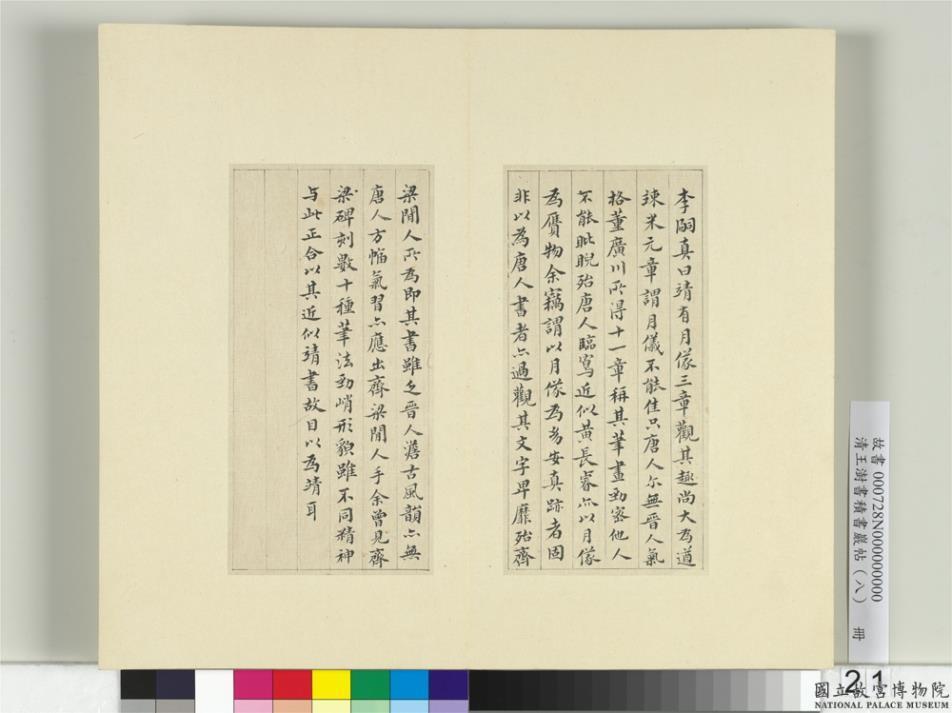 李嗣真曰靖有月儀三章觀其趣尚大為遒
竦米元章謂月儀不能佳只唐人尔無晉人氣
格董廣川所得十一章稱其筆畫勁密他人
不能睥睨殆唐人臨寫近似黃長睿亦以月儀
為贋物余竊謂以月儀為幼安真跡者固
非以為唐人書者亦過觀其文字卑靡殆齊
梁閒人所為即其書雖乏晉人澹古風韻亦無
唐人方幅氣習亦應出齊梁閒人手余曾見齊
梁碑刻數十種筆法勁峭形貌雖不同精神
与此正合以其近似靖書故目以為靖耳
故書 000728N000000000
清王澍書積書巖帖（八） 冊
21
國立故宮博物院
NATIONAL PALACE MUSEUM